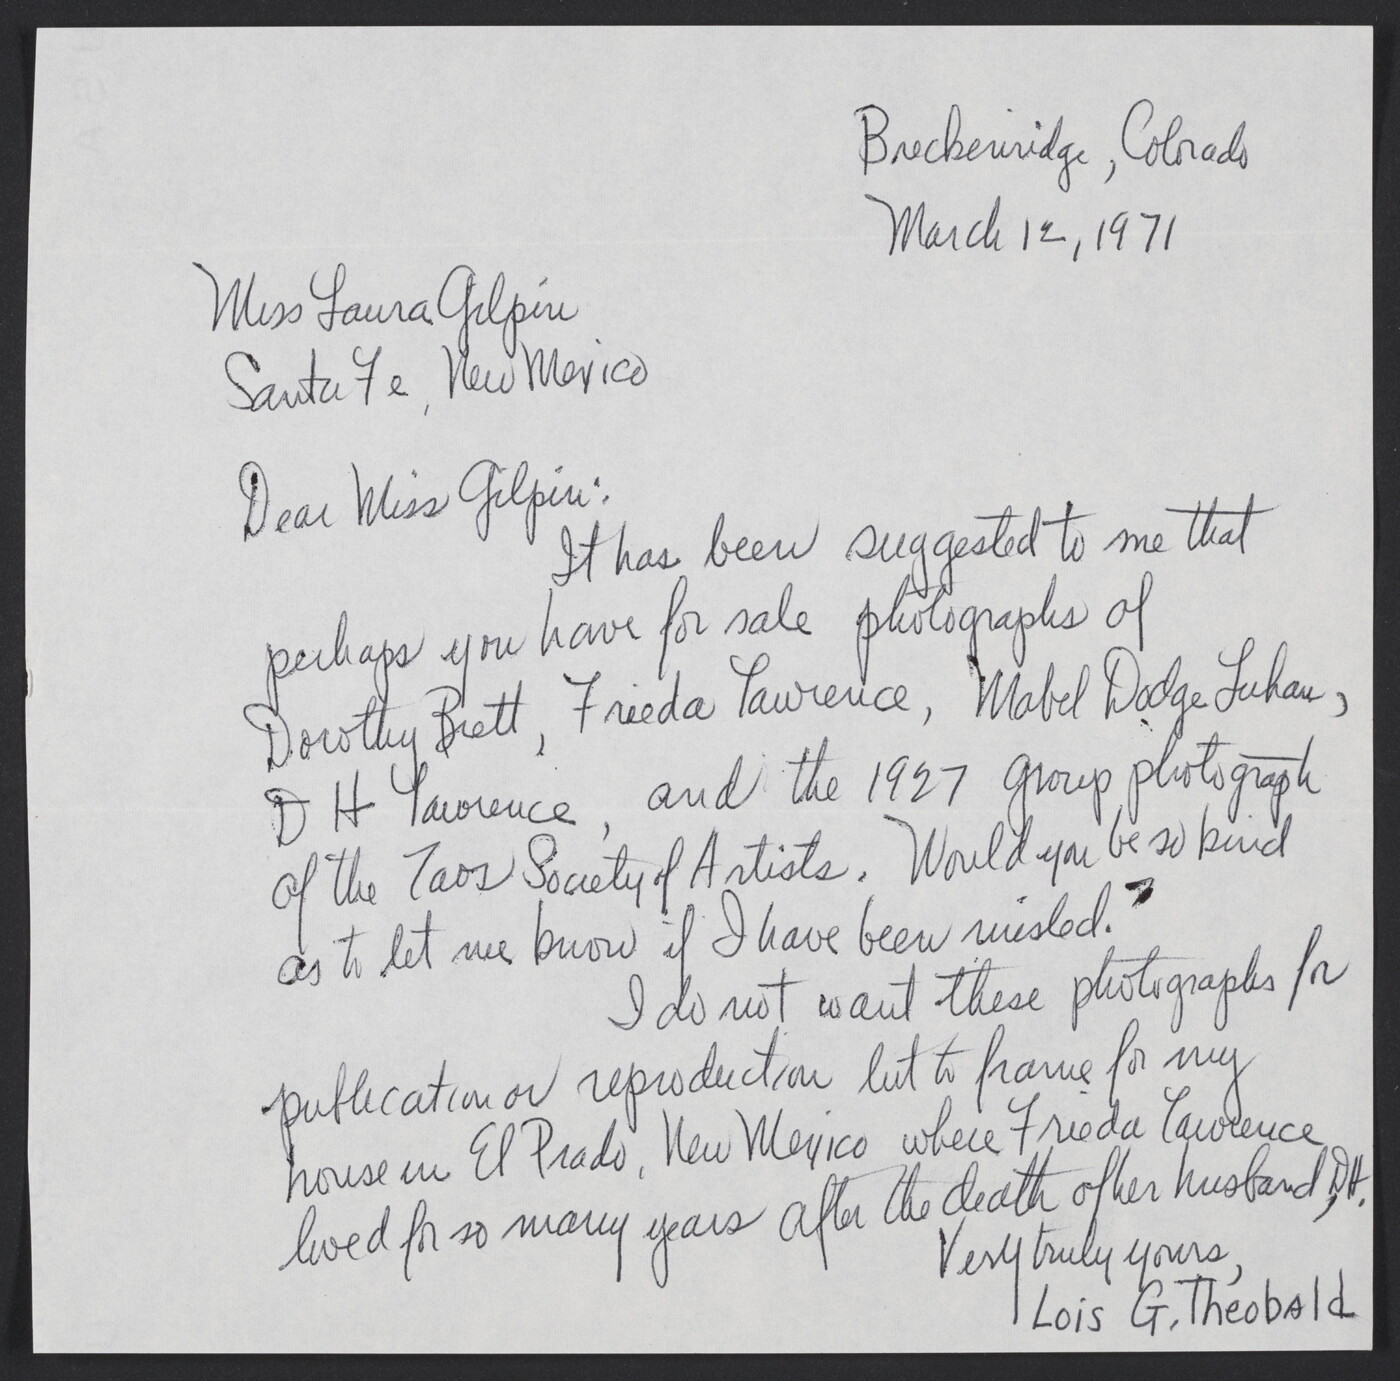 Breckenridge, Colorado
March 12, 1971
Miss Laura Gilpin
Santa Fe, New Mexico
Dear Miss Gilpin:
It has been suggested to me that
perhaps you have for sale photographs of
Dorothy Brett, Frieda Lawrence, Mabel Dodge Luhan,
D H Lawrence, and the 1927 group photograph
of the Taos Society of Artists. Would you be so kind
as to let me know if I have been misled.
I do not want these photographs for
publication or reproduction but to frame for my
house in El Prado, New Mexico where Frieda Lawrence
lived for so many years after the death of her husband, DH.
Very truly yours,
Lois G. Theobald